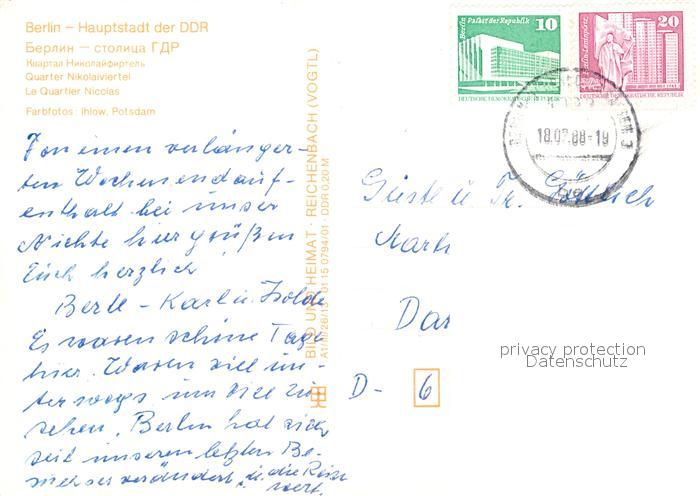 Berlin – Hauptstadt der DDR
Берлин — столица ГДР
Квартал Николайфиртель
Quarter Nikolaiviertel
Le Quartier Nicolas
Farbfotos: Ihlow, Potsdam
Von einem verlänger-
ten Wochenendauf-
enthalt bei unser
Nichte hier grüßen
Euch herzlich
Berte - Karl u. Isolde
Es waren schöne Tage
hier. Waren viel un-
terwegs um viel zu
sehen. Berlin hat sich
seit unseren letzten Be-
such sehr verändert u. die Reise
wert.
BILD UND HEIMAT · REICHENBACH (VOGTL)
A1/III/26/13 · 01 15 0794/01 · DDR 0,20 M
Berlin, Palast der Republik
10
DEUTSCHE DEMOKRATISCHE REPUBLIK
Berlin, Leninplatz
20
DEUTSCHE DEMOKRATISCHE REPUBLIK
18.07.88-19
Güste u. Fr.
Karls
Dar
privacy protection
Datenschutz
D- 6